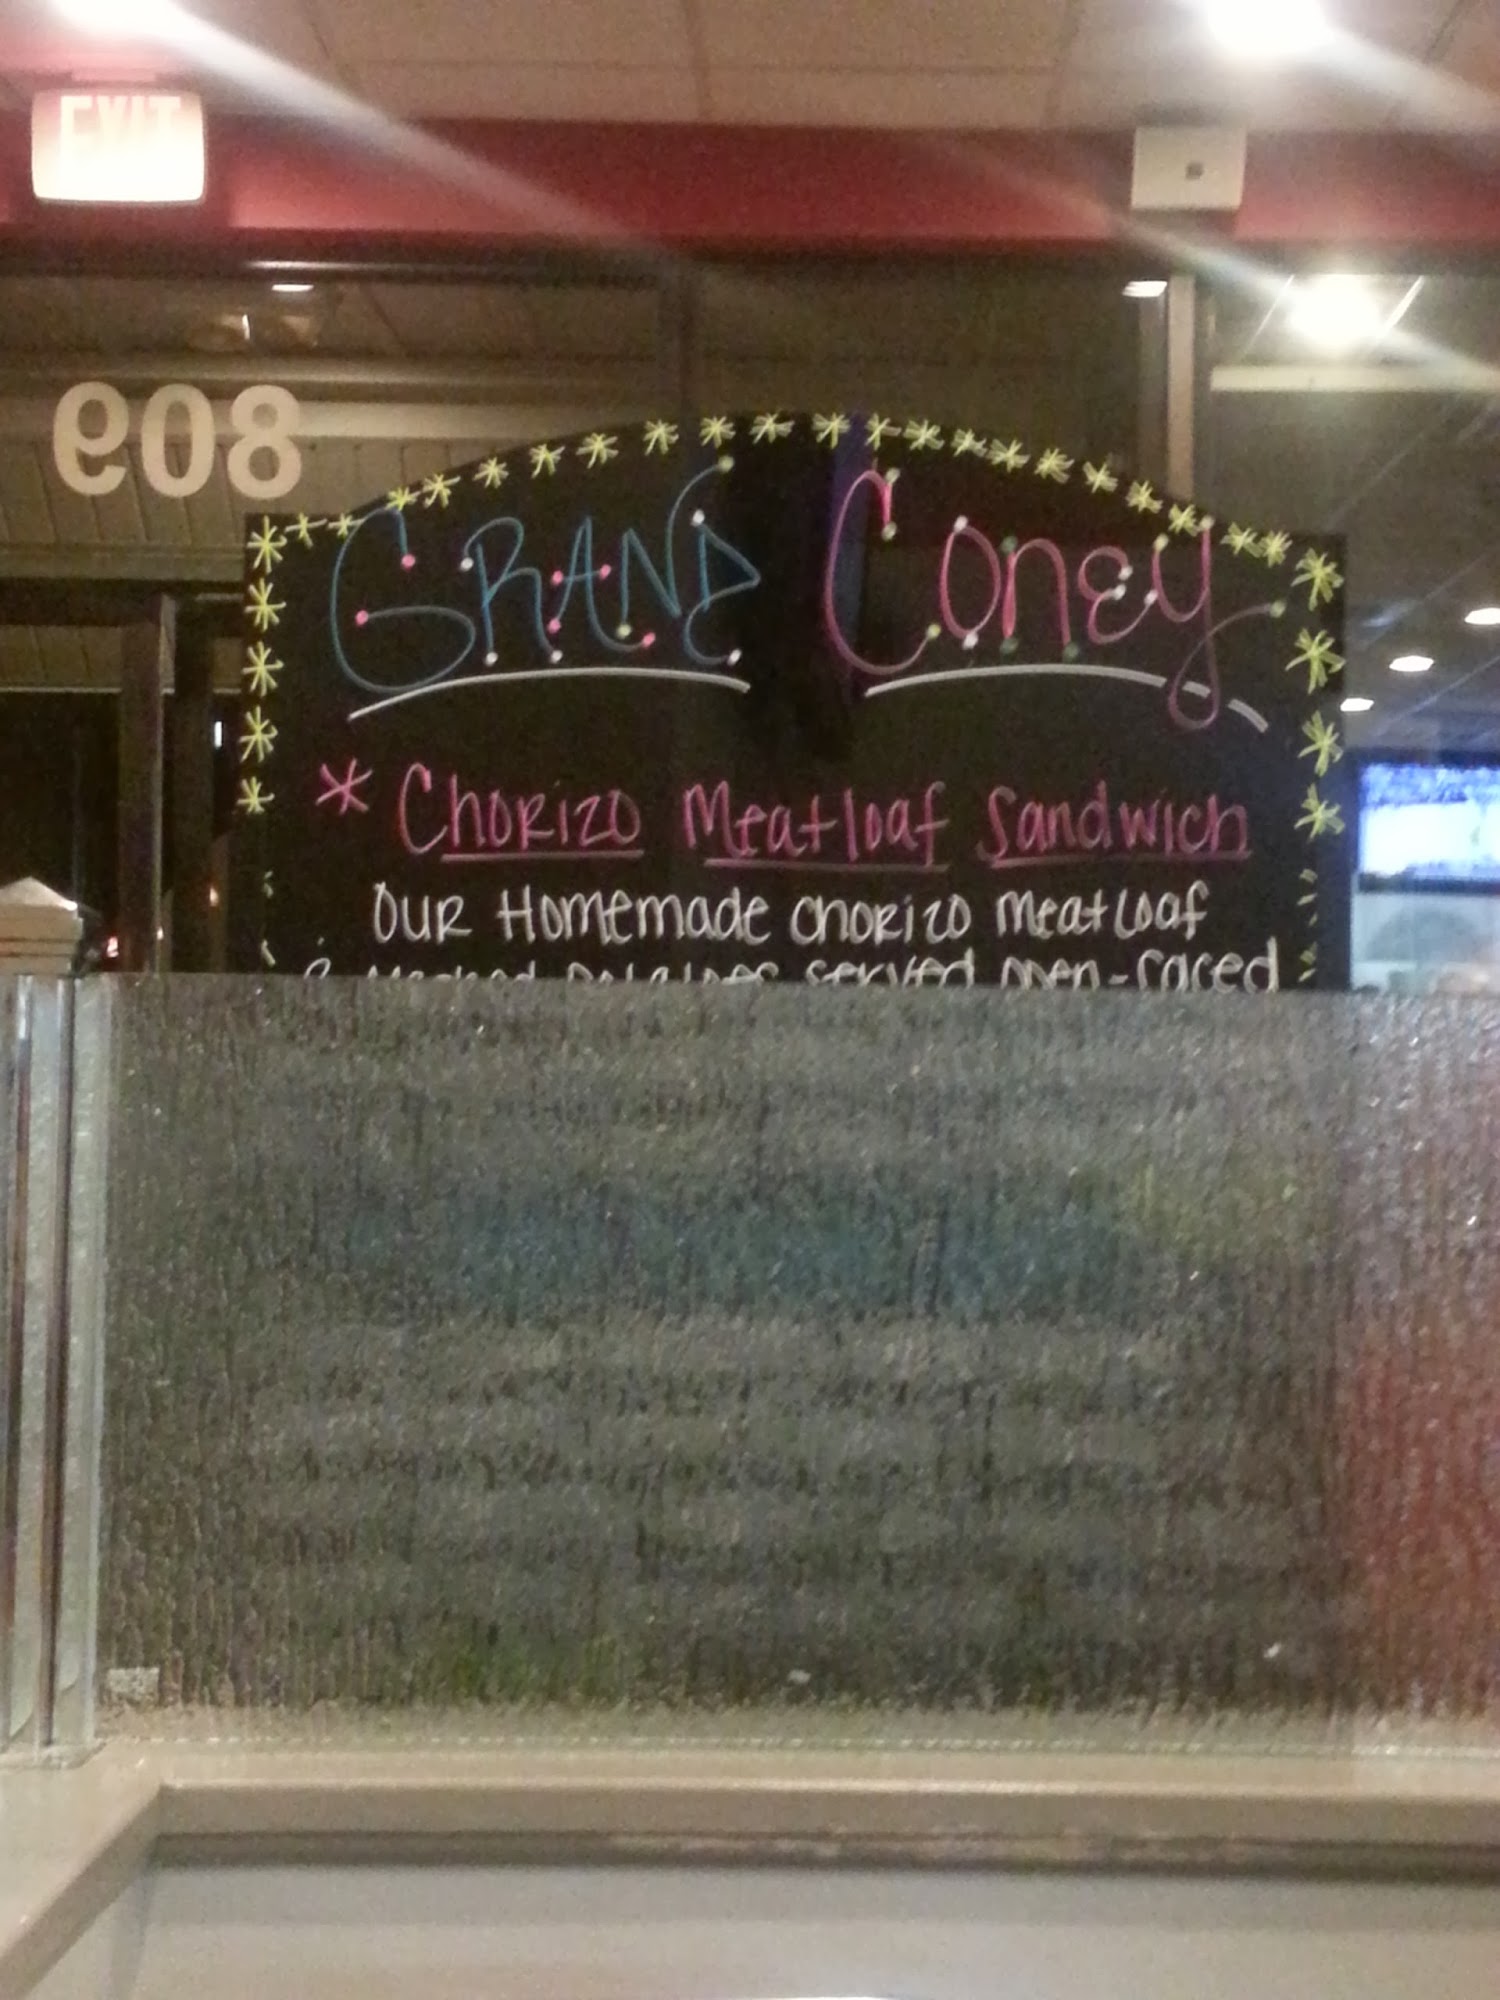 EXIT
809
GRAND CONEY
* CHORIZO MEATLOAF SANDWICH
OUR HOMEMADE CHORIZO MEATLOAF
& MASHED POTATOES SERVED OPEN-FACED